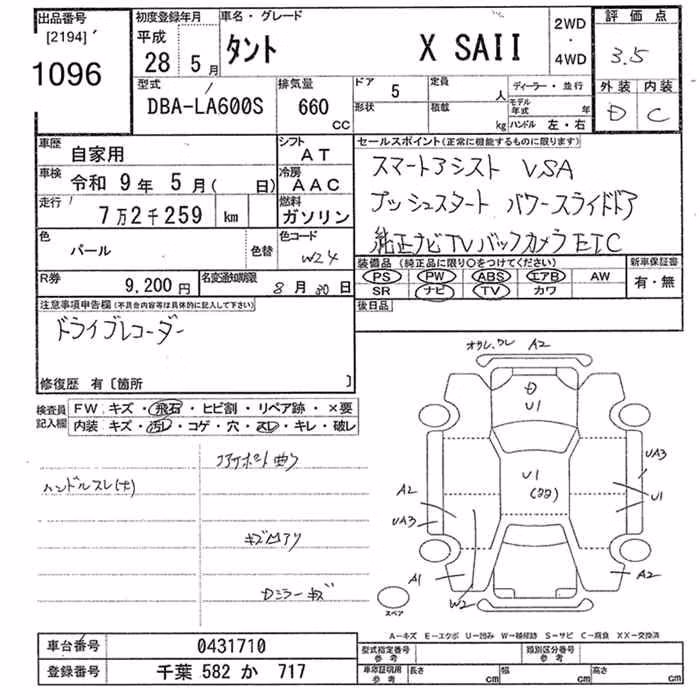 出品番号
[2194]
1096
初度登録年月
平成
28 5 月
車名・グレード
タント X SAII
2WD
・
4WD
評価点
3.5
外装 内装
D C
型式
DBA-LA600S
排気量
660
CC
ドア 5
形状
定員 人
積載 kg
ディーラー・並行
モデル年式 年
ハンドル 左・右
車歴
自家用
シフト
AT
車検
令和 9 年 5 月( 日)
冷房
AAC
走行
7万2千259 km
燃料
ガソリン
色
パール
色替
色コード
W24
R券
9,200 円
名変通知期限
8 月 30 日
セールスポイント(正常に機能するものに限ります)
スマートアシスト VSA
プッシュスタート パワースライドドア
純正ナビTVバックカメラETC
装備品(純正品に限り○をつけてください)
PS PW ABS エアB AW
SR ナビ TV カワ
新車保証書
有・無
後日品
注意事項申告欄(不具合内容等は具体的に記入して下さい)
ドライブレコーダー
修復歴 有〔箇所 〕
検査員
記入欄
FW キズ・飛石・ヒビ割・リペア跡・×要
内装 キズ・汚レ・コゲ・穴・スレ・キレ・破レ
ハンドルスレ(大)
キズ凹アリ
Dミラーキズ
A2
D
U1
U1
UA3
U1
A2
UA3
A1
W2
A2
スペア
A−キズ E−エクボ U−凹み W−補修跡 S−サビ C−腐食 XX−交換済
車台番号 0431710
登録番号 千葉 582 か 717
型式指定番号
参考
類別区分番号
参考
車庫証明用
参考
長さ cm
幅 cm
高さ cm